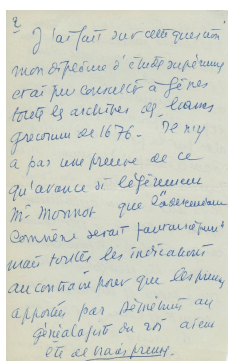 2
J'ai fait sur cette question
mon diplôme d'étude supérieure
et ai pu consulter à Gênes
toutes les archives
de 1676. Il n'y
a pas une preuve de ce
qu'avance si légèrement
Mr Monnot que la descendance
Comnène serait
mais toutes les indications
au contraire pour que les preuves
apportées par Démétrius au
généalogiste du roi aient
été de vraies preuves.